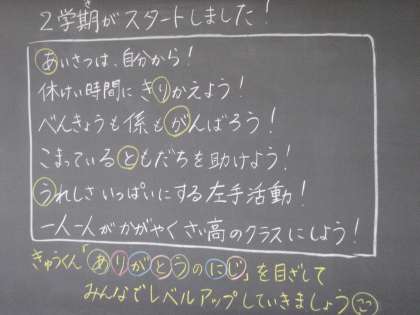 2学期がスタートしました！
あいさつは、自分から！
休けい時間にきりかえよう！
べんきょうも係もがんばろう！
こまっているともだちを助けよう！
うれしさいっぱいにする左手活動！
一人一人がかがやくさい高のクラスにしよう！
きゅうくん「ありがとうのにじ」を目ざして
みんなでレベルアップしていきましょう